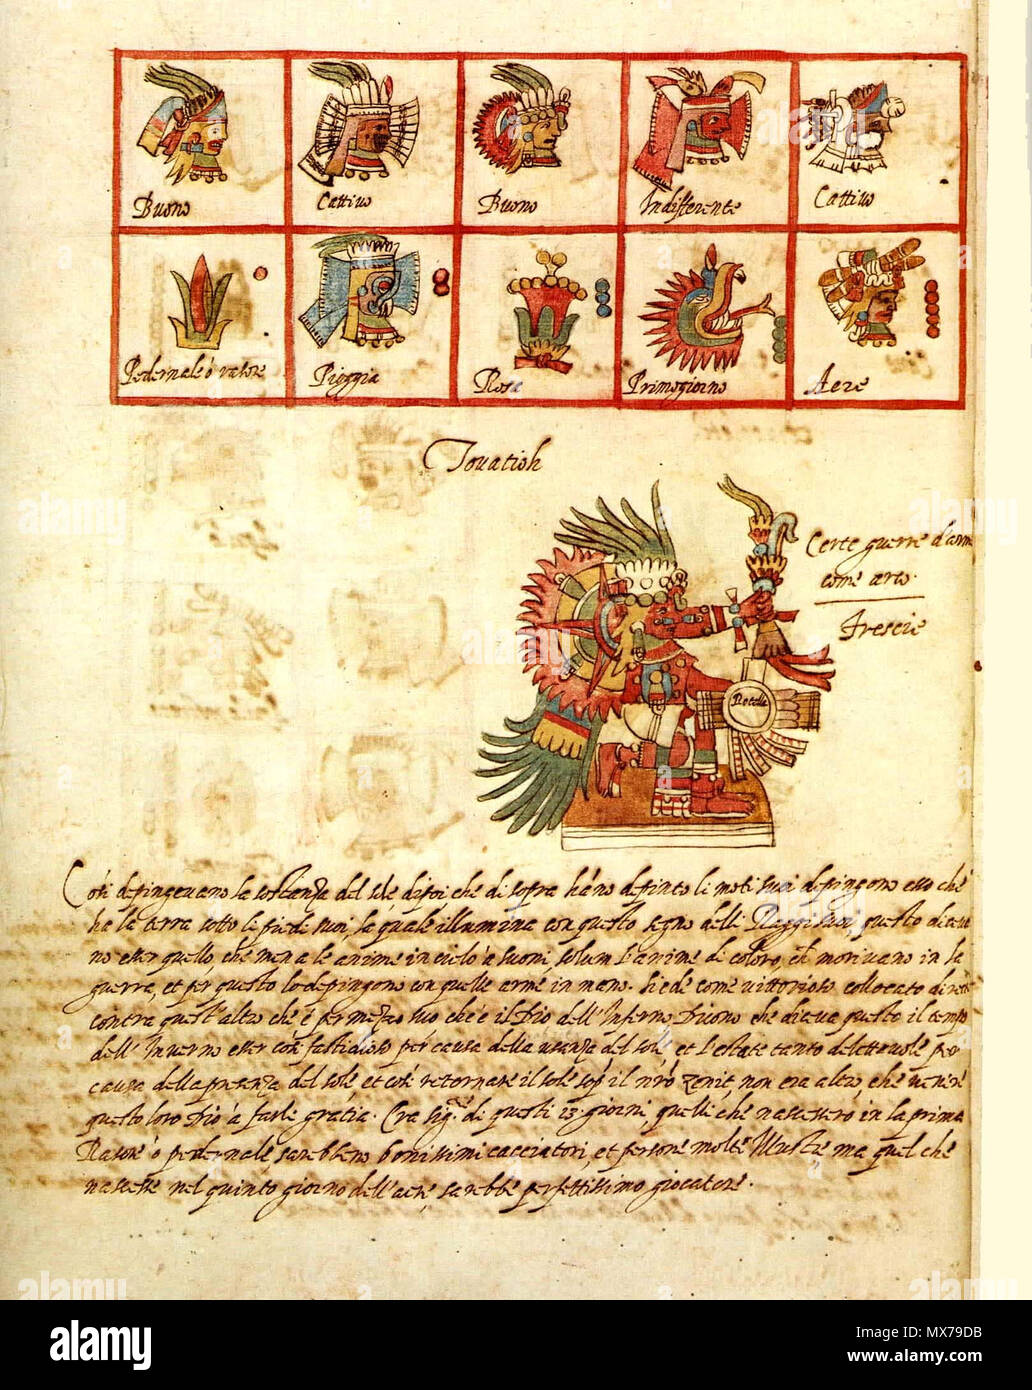 Buono Cattivo Buono Indifferente Cattivo
Pedernale ó rasore Pioggia Rosa Primogiorno Aere
Tonatioh
Certe guerre d'arme
come arco
Freccie
Rotella
Cosi depingevano la sostanza del sole dipoi ché di sopra hano depinto li moti suoi depingono esso ché
ha la terra sotto le piedi suoi, la quale illumina con questo segno delli Raggi suoi, questo diceva
no esser quello, che mena le anime in cielo a suoni, solum l'anime di coloro, che morivano in la
guerra, et per questo lo depingono con quelle arme in mano. Siede come vittorioso collocato
contra quest'altro che é per mezzo suo che é il Dio dell'Inferno Dicono che diceva questo il tempo
dell'Inverno esser cosi fastidioso per causa della usanza del sole, et l'estate tanto delettevole per
causa della presenza del sole, et cosi retornare il sole sop il nró zenit, non era altro, ché venire
questo loro Dio á farle gratia. Cra di questi 13 giorni, quelli ché nascessero in la prima
Rasore ó pedernale, sarebbero bonissimi cacciatori, et persone molte Illustre ma quel ché
nascesse nel quinto giorno dell'aere sarebbe perfettissimo giocatore.
alamy
Image ID: MX79DB
www.alamy.com